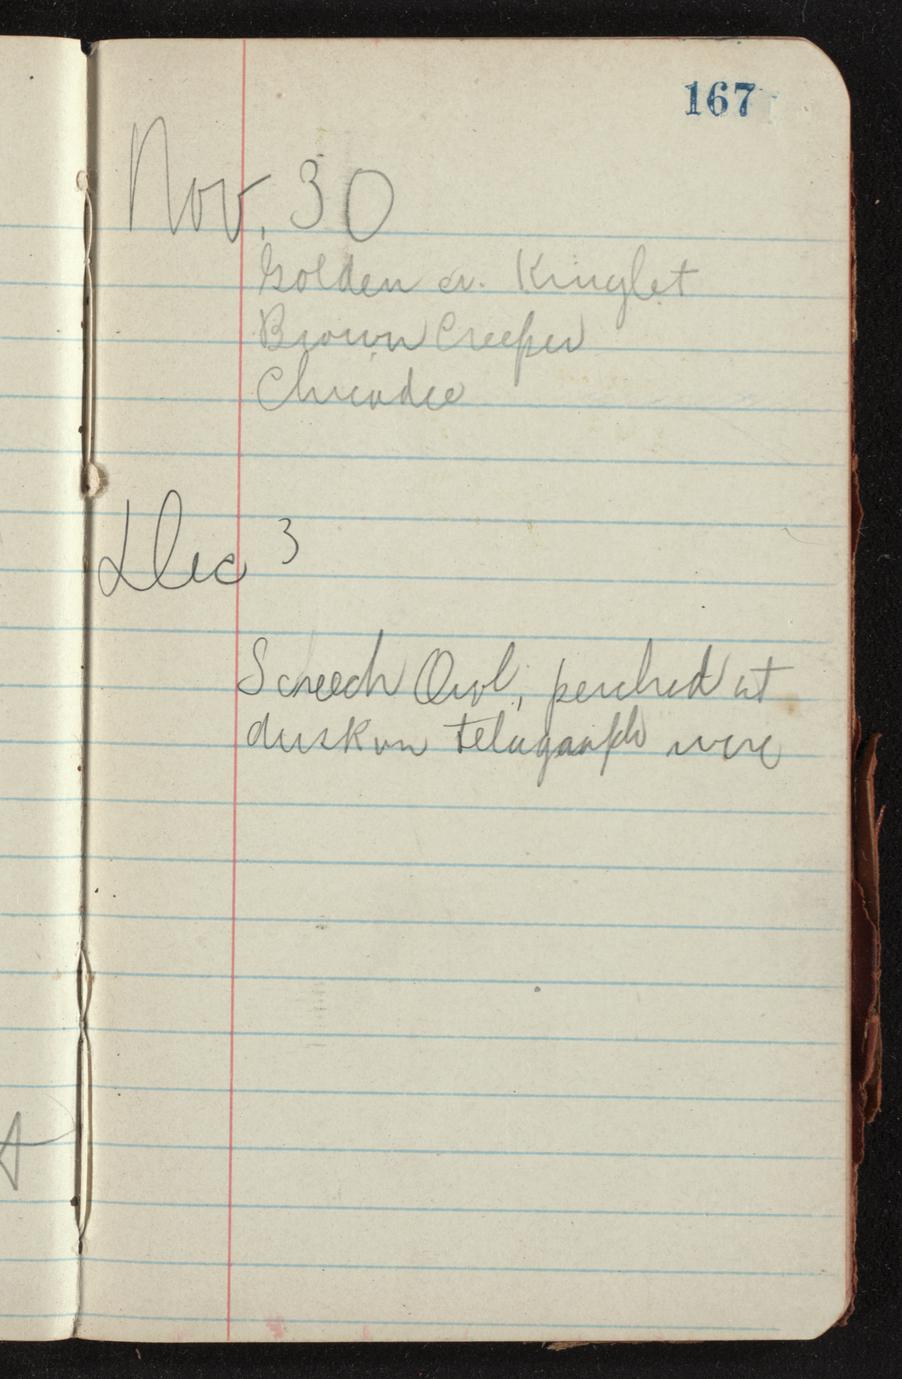 167
Nov. 30
Golden cr. Kinglet
Brown Creeper
Chicadee
Dec 3
Screech Owl, perched at
dusk on telegraph wire